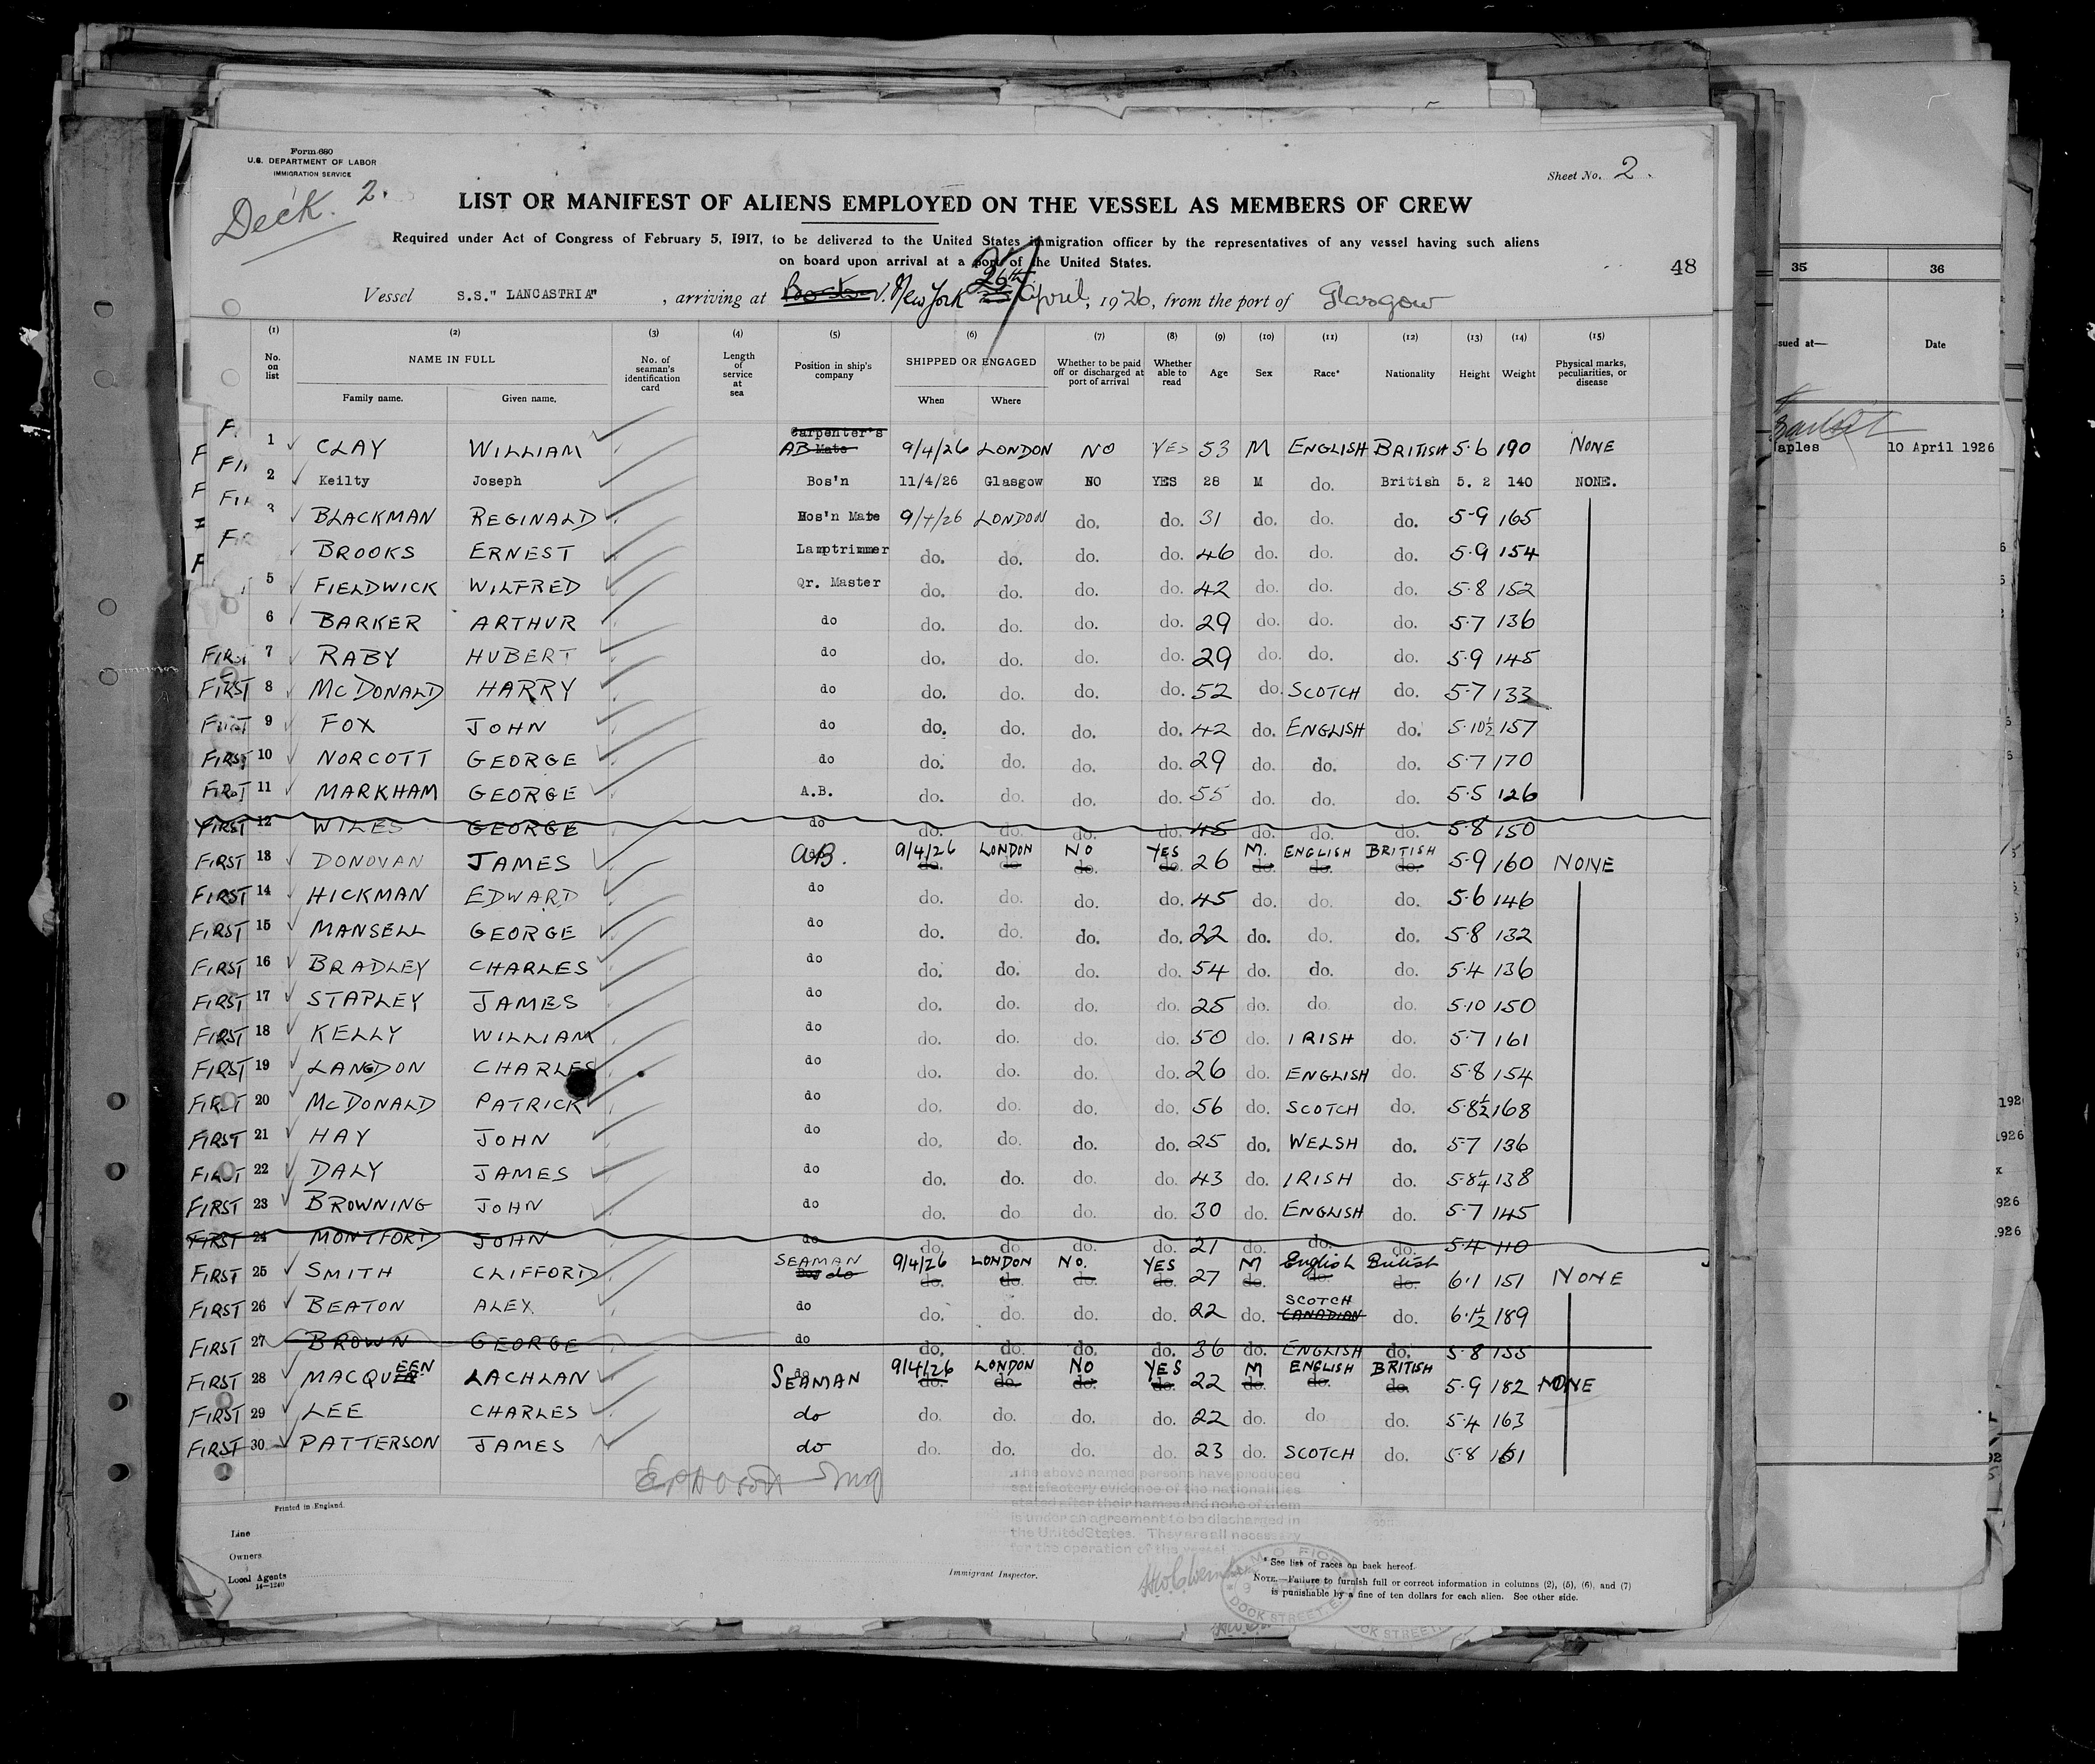 Form 680
U.S. DEPARTMENT OF LABOR
IMMIGRATION SERVICE
Deck. 2.
Sheet No. 2.
LIST OR MANIFEST OF ALIENS EMPLOYED ON THE VESSEL AS MEMBERS OF CREW
Required under Act of Congress of February 5, 1917, to be delivered to the United States immigration officer by the representatives of any vessel having such aliens
on board upon arrival at a port of the United States.
48
Vessel S.S." LANCASTRIA" , arriving at Boston New York 26th April, 1926, from the port of Glasgow
(1) (2) (3) (4) (5) (6) (7) (8) (9) (10) (11) (12) (13) (14) (15)
No. on list NAME IN FULL Family name. Given name. No. of seaman's identification card Length of service at sea Position in ship's company SHIPPED OR ENGAGED When Where Whether to be paid off or discharged at port of arrival Whether able to read Age Sex Race* Nationality Height Weight Physical marks, peculiarities, or disease
1 CLAY WILLIAM Carpenter's Mate AB 9/4/26 LONDON NO YES 53 M ENGLISH BRITISH 5·6 190 NONE
2 Keilty Joseph Bos'n 11/4/26 Glasgow NO YES 28 M do. British 5. 2 140 NONE.
3 BLACKMAN REGINALD Bos'n Mate 9/4/26 LONDON do. do. 31 do. do. do. 5·9 165
BROOKS ERNEST Lamptrimmer do. do. do. do. 46 do. do. do. 5·9 154
5 FIELDWICK WILFRED Qr. Master do. do. do. do. 42 do. do. do. 5·8 152
6 BARKER ARTHUR do do. do. do. do. 29 do. do. do. 5·7 136
FIRST 7 RABY HUBERT do do. do. do. do. 29 do. do. do. 5·9 145
FIRST 8 McDONALD HARRY do do. do. do. do. 52 do. SCOTCH do. 5·7 133
FIRST 9 FOX JOHN do do. do. do. do. 42 do. ENGLISH do. 5·10½ 157
FIRST 10 NORCOTT GEORGE do do. do. do. do. 29 do. do. do. 5·7 170
FIRST 11 MARKHAM GEORGE A.B. do. do. do. do. 55 do. do. do. 5·5 126
FIRST 12 WILES GEORGE do do. do. do. do. 45 do. do. do. 5·8 150
FIRST 13 DONOVAN JAMES AB. 9/4/26 LONDON NO YES 26 M. ENGLISH BRITISH 5·9 160 NONE
FIRST 14 HICKMAN EDWARD do do. do. do. do. 45 do. do. do. 5·6 146
FIRST 15 MANSELL GEORGE do do. do. do. do. 22 do. do. do. 5·8 132
FIRST 16 BRADLEY CHARLES do do. do. do. do. 54 do. do. do. 5·4 136
FIRST 17 STAPLEY JAMES do do. do. do. do. 25 do. do do. 5·10 150
FIRST 18 KELLY WILLIAM do do. do. do. do. 50 do. IRISH do. 5·7 161
FIRST 19 LANGDON CHARLES do do. do. do. do. 26 do. ENGLISH do. 5·8 154
FIRST 20 McDONALD PATRICK do do. do. do. do. 56 do. SCOTCH do. 5·8½ 168
FIRST 21 HAY JOHN do do. do. do. do. 25 do. WELSH do. 5·7 136
FIRST 22 DALY JAMES do do. do. do. do. 43 do. IRISH do. 5·8¼ 138
FIRST 23 BROWNING JOHN do do. do do. do. 30 do. ENGLISH do. 5·7 145
FIRST 24 MONTFORD JOHN do do. do. do. do. 21 do. do. do. 5·4 110
FIRST 25 SMITH CLIFFORD SEAMAN do 9/4/26 LONDON NO. YES 27 M English British 6·1 151 NONE
FIRST 26 BEATON ALEX do do. do. do. do. 22 do. SCOTCH CANADIAN do. 6·1½ 189
FIRST 27 BROWN GEORGE do do. do. do. do. 36 do. ENGLISH do. 5·8 155
FIRST 28 MACQUEEN LACHLAN do. SEAMAN 9/4/26 LONDON NO YES 22 M ENGLISH BRITISH 5·9 182 NONE
FIRST 29 LEE CHARLES do do. do. do. do. 22 do. do do. 5·4 163
FIRST 30 PATTERSON JAMES do do. do. do. do. 23 do. SCOTCH do. 5·8 161
The above named persons have produced
satisfactory evidence of the nationalities
stated after their names and none of them
is under an agreement to be discharged in
the United States. They are all necessary
for the operation of the vessel
Printed in England.
Line
Owners
Local Agents
14—1240
Immigrant Inspector.
* See list of races on back hereof.
NOTE.—Failure to furnish full or correct information in columns (2), (5), (6), and (7)
is punishable by a fine of ten dollars for each alien. See other side.
DOCK STREET. E.
35 36
sued at— Date
aples 10 April 1926
1926
926
1926